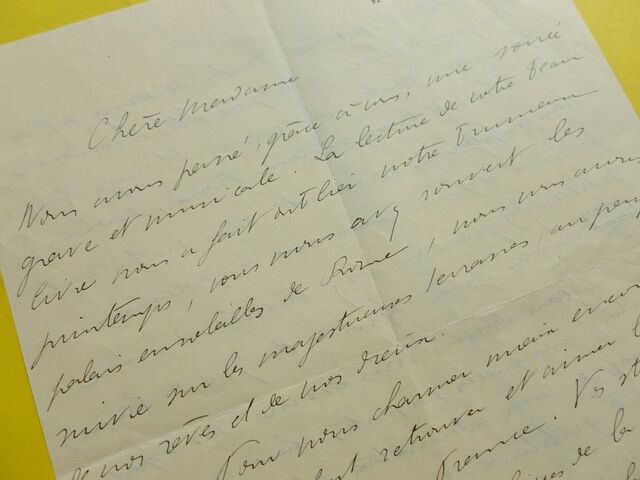 Chère Madame
Nous avons passé, grâce à vous, une soirée
grave et musicale. La lecture de votre beau
livre nous a fait oublier notre
printemps, vous nous avez souvent les
palais ensoleillés de Rome, nous vous avons
suivie sur les majestueuses terrasses, au pays
de nos rêves et de nos dieux.
Pour nous charmer mieux encore
retrouver et aimer
France. Vs
de la